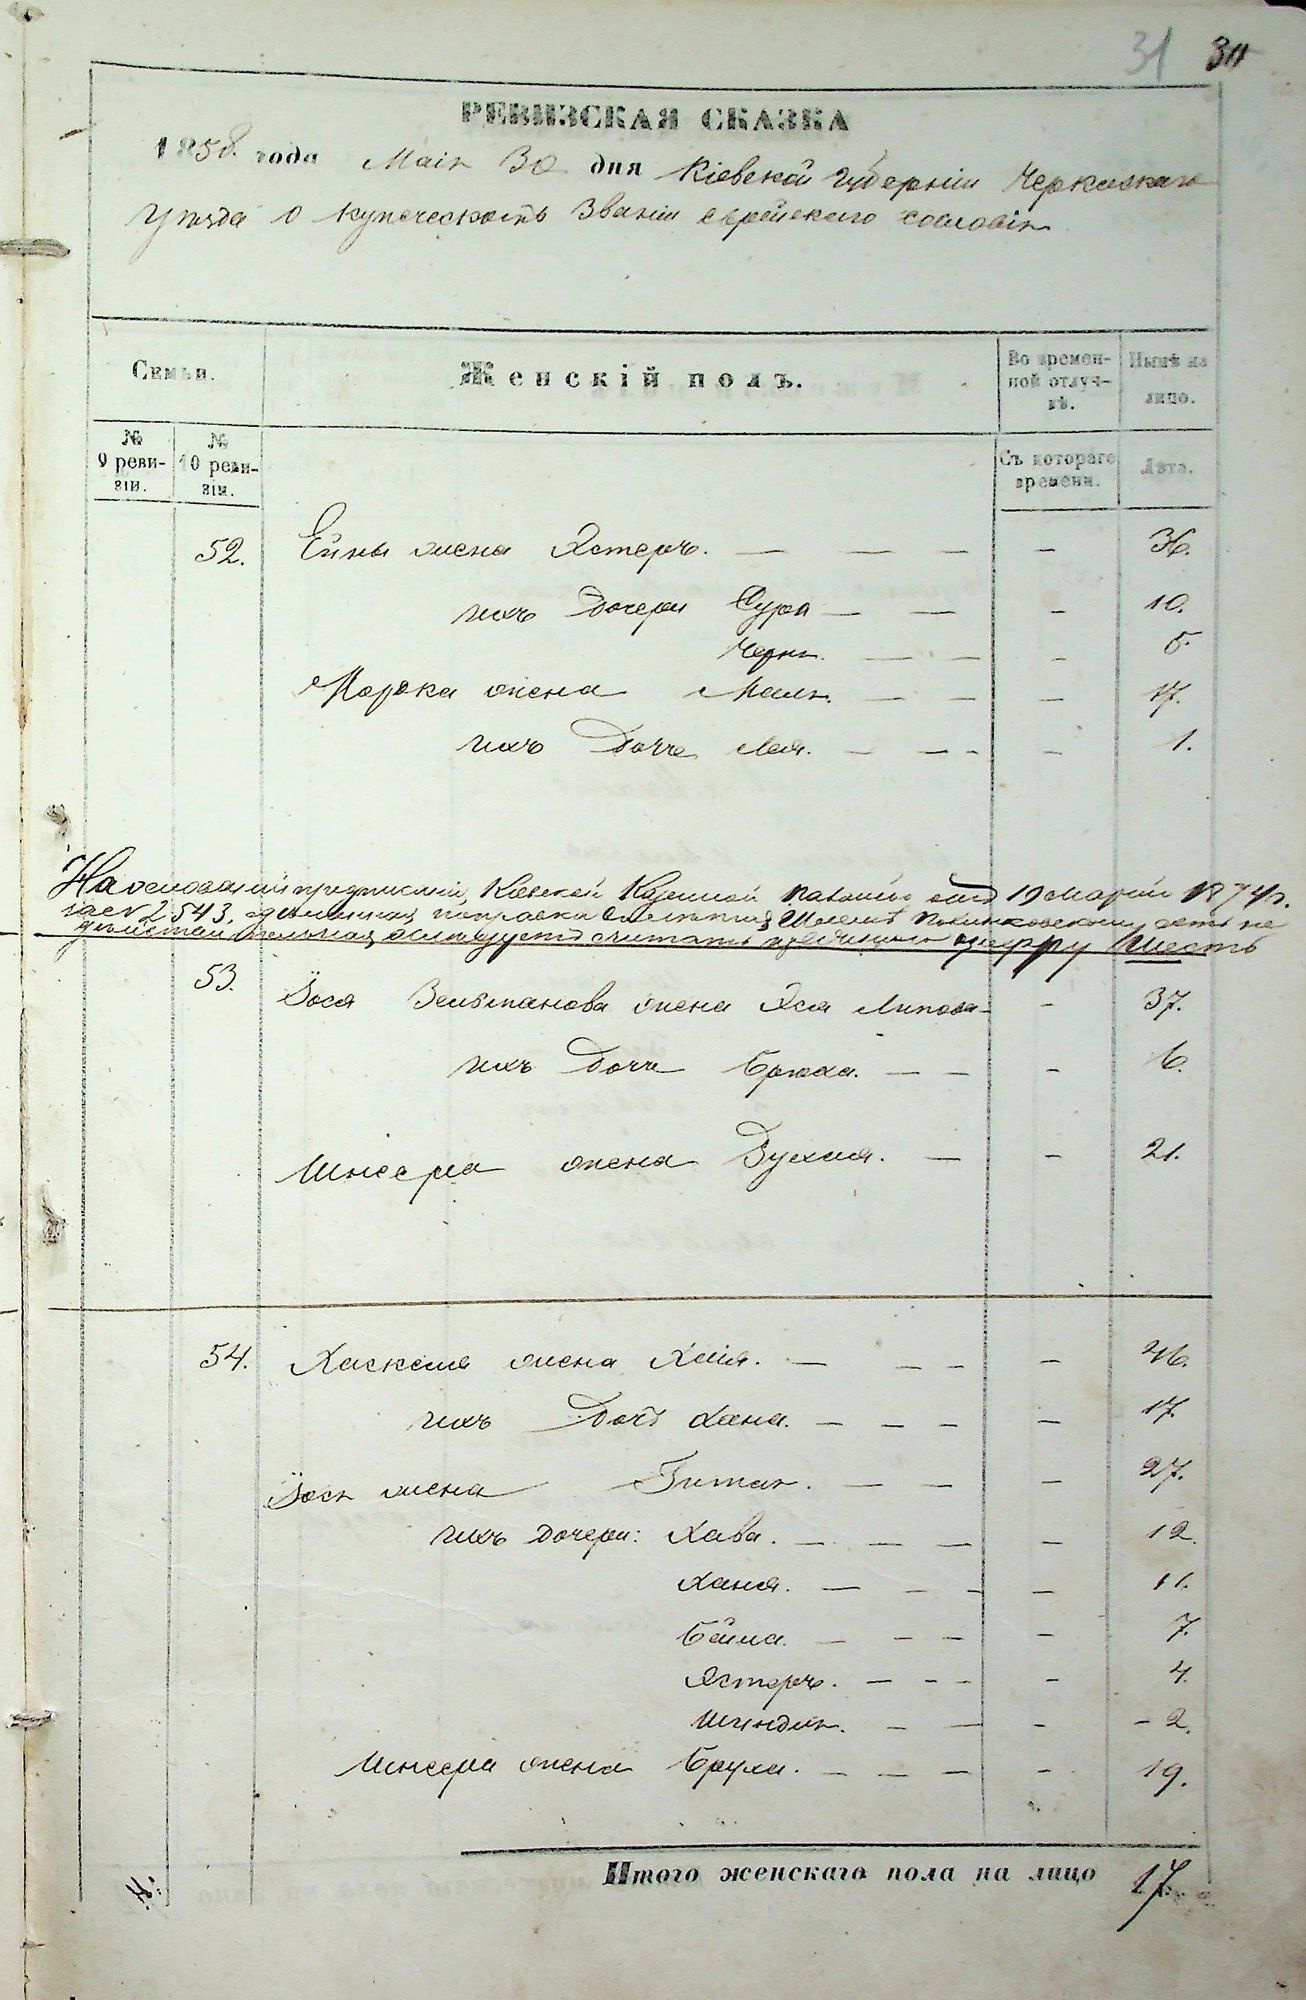 31 30
РЕВИЗСКАЯ СКАЗКА
1858. года Маія 30 дня Кіевской губерніи Черкаскаго
уѣзда о купеческомъ званіи еврейскаго сословія
Семьи. Женскій полъ. Во времен-ной отлуч-кѣ. Нынѣ на лицо.
№ 9 реви-зіи. № 10 реви-зіи. Съ котораго времени. Лѣта.
52. жена Эстеръ. — — — - 36.
ихъ дочери Сура — — - 10.
Черня. — — - 5.
Морка жена Маля. — — - 17.
ихъ дочь Лея. — — - - 1.
На основаніи предписанія, Кіевской Казенной Палаты отъ 19 Марта 1874 г.
за № 2543, сдѣланная поправка есть не
дѣйствительная, а слѣдуетъ считать цифру шесть
53. Іося Зельманова жена Хася Липова - - 37.
ихъ дочь Брюха. — — - 6.
жена — - 21.
54. Хаскеля жена Хаія. — — — - 46.
ихъ дочь Хана. — — — — - 17.
Іося жена Гитля. — — - 27.
ихъ дочери: Хава. — — — - 12.
Ханя. — — - - - 11.
Бейла. — — — - 7.
Эстеръ. — - - - 4.
Шиндля. — — - - 2.
жена Бруха. — — — - 19.
Итого женскаго пола на лицо 17